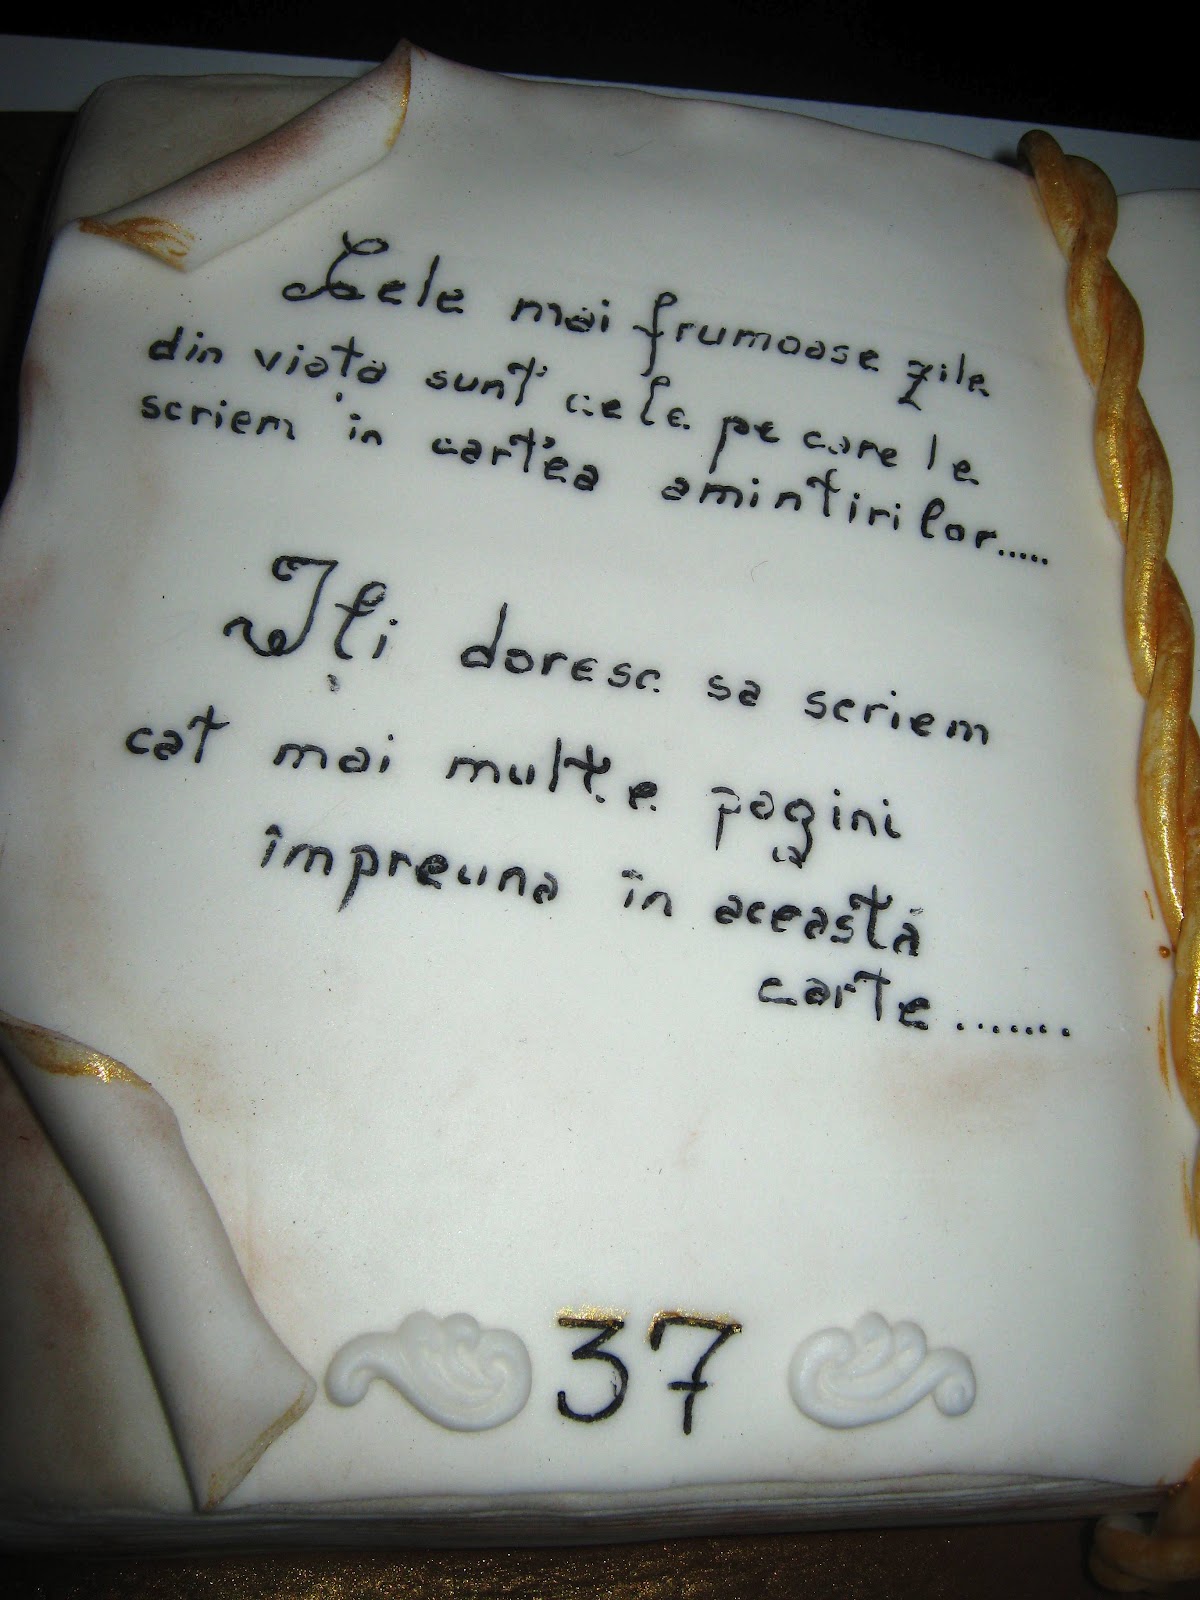 Cele mai frumoase zile
din viata sunt cele pe care le
scriem in cartea amintirilor.....
Iti doresc sa scriem
cat mai multe pagini
împreuna în această
carte.......
37